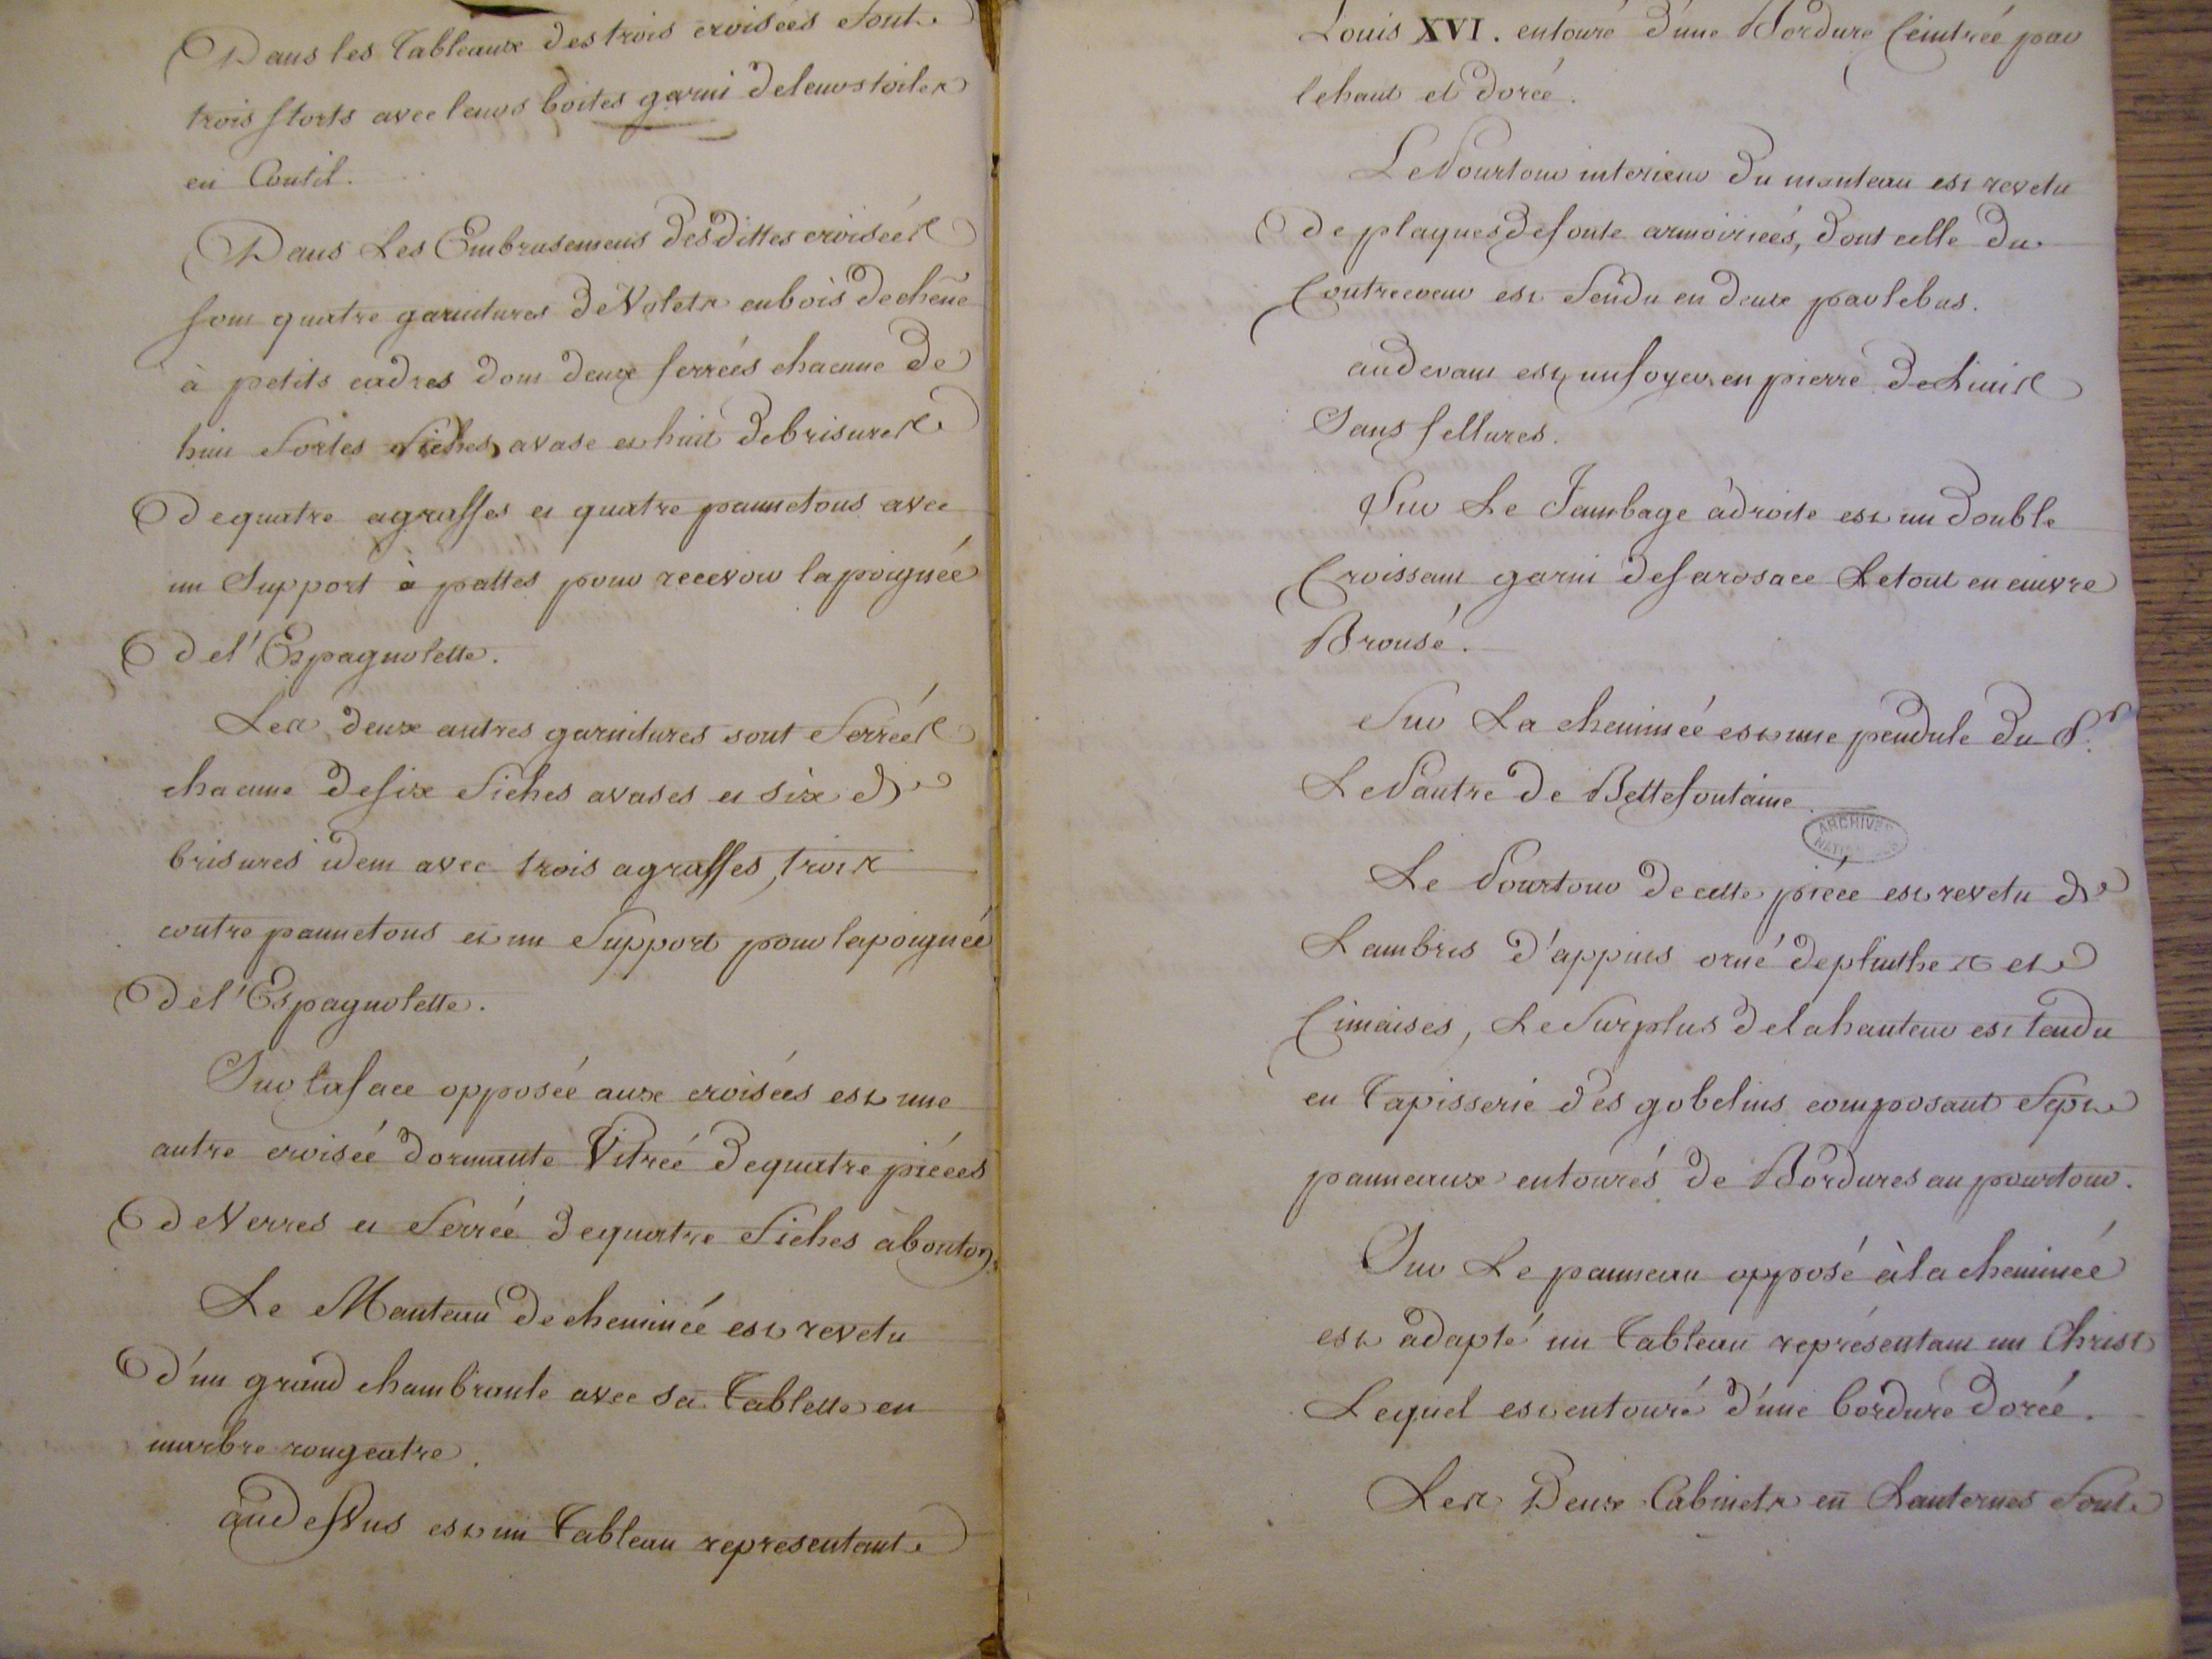 Dans les Tableaux des trois croisées sont
trois storts avec leurs boites garni de leurs toiles
en Coutil.
Dans Les Embrasemens desdittes croisées
sont quatre garnitures de Volets en bois de chêne
à petits cadres dont deux ferrées chacune de
huit fortes fiches a vase et huit de brisures
de quatre agraffes et quatre pannetons avec
un Support à pattes pour recevoir la poignée
de l'Espagnolette.
Les deux autres garnitures sont ferrées
chacune de six fiches a vases et six de
brisures idem avec trois agraffes, trois
contre pannetons et un Support pour la poignée
de l'Espagnolette.
Sur la face opposée aux croisées est une
autre croisée dormante Vitrée de quatre piéces
de Verres et ferrée de quatre fiches à bouton.
Le Manteau de cheminée est revetu
d'un grand chambranle avec sa Tablette en
marbre rougeatre.
au dessus est un Tableau representant
Louis XVI. entouré d'une Bordure Ceintrée par
le haut et dorée.
Le Pourtour interieur du manteau est revetu
de plaques de fonte armoiriées, dont celle du
Contrecoeur est fendu en deux par le bas.
au devant est un foyer en pierre de Liais
Sans fellures.
Sur Le Jambage à droite est un double
Croissant garni de sa rosace Le tout en cuivre
Bronsé.
Sur La cheminée est une pendule du S.r
LePautre de Bellefontaine.
ARCHIVES
NATIONALES
Le Pourtour de cette piéce est revetu de
Lambris d'appuis orné de plinthes et
Cimaises, Le Surplus de la hauteur est tendu
en Tapisserie des gobelins composant Sept
panneaux entourés de Bordures au pourtour.
Sur Le panneau opposé à la cheminée
est adapté un Tableau représentant un Christ
Lequel est entouré d'une bordure dorée.
Les Deux Cabinets en Lanternes sont